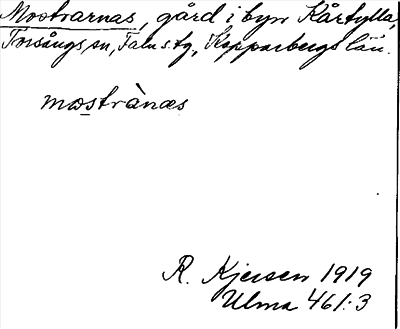 Mostrarnas, gård i byn Kårtylla,
Torsångs sn, Falu s. tg, Kopparbergs län.
mostrànæs
R. Kjersen 1919
Ulma 461:3